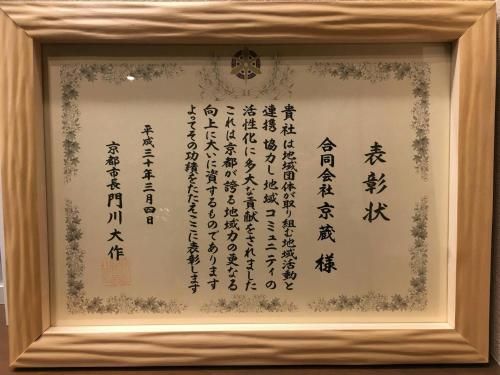 表彰状
合同会社 京蔵 様
貴社は地域団体が取り組む地域活動と
連携 協力し 地域コミュニティの
活性化に多大な貢献をされました
これは京都が誇る地域力の更なる
向上に大いに資するものであります
よってその功績をたたえここに表彰します
平成三十年三月四日
京都市長 門川大作